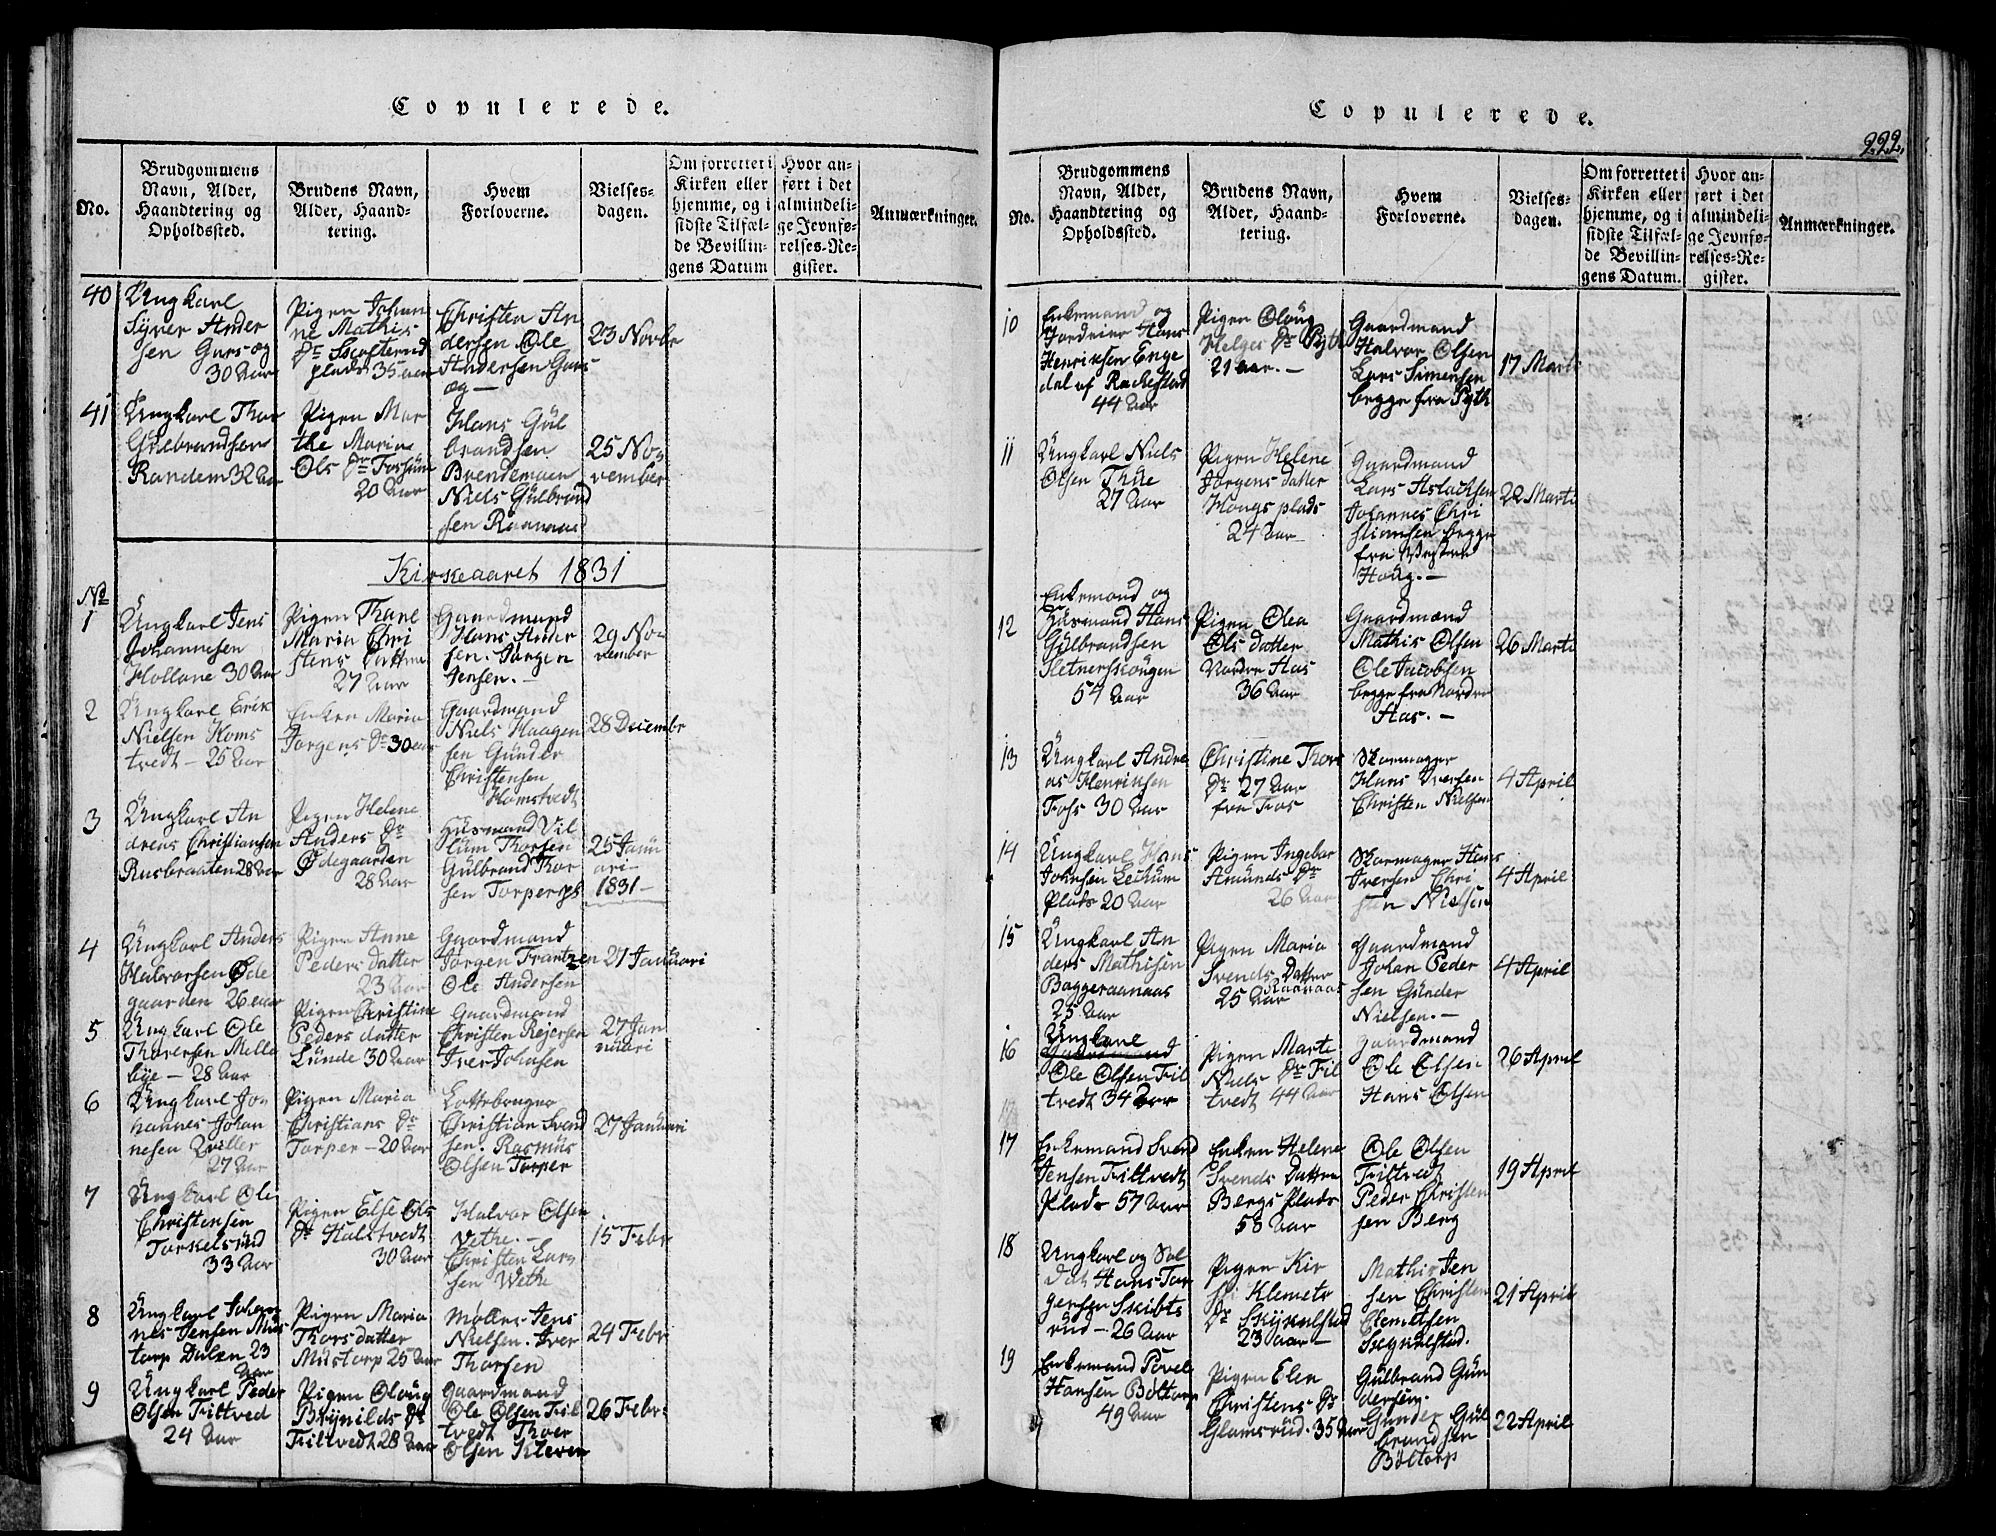 Copulerede.
No.
Brudgommens
Navn, Alder,
Haandtering og
Opholdssted.
Brudens Navn,
Alder, Haand-
tering.
Hvem
Forloverne.
Vielses-
dagen.
Om forrettet i
Kirken eller
hjemme, og i
sidste Tilfæl-
de Bevillin-
gens Datum
Hvor an-
ført i det
almindeli-
ge Jevnfø-
relses-Re-
gister.
Anmærkninger.
40
Ungkarl
Syver Ander
sen
30 Aar
Pigen Johan
ne Mathis
Dr
plads 35 aar
Christen An
dersen Ole
Andersen
23 Novbr
41
Ungkarl Thor
Gülbrandsen
Randem 32 Aar
Pigen Mar
the Maria
Ols Dr Fossüm
20 Aar
Hans Gül
brandsen
Brendemoen
Niels Gülbrand
sen Raanaas
25 No
vember
Kirkeaaret 1831
No
1
Ungkarl Jens
Johannesen
Hollane 30 Aar
Pigen Thale
Maria Chri
stens Datter
27 Aar
Gaardmand
Hans Ander
sen. Jørgen
Jensen. –
29 No
vember
2
Ungkarl Erik
Nielsen Homs
tvedt – 25 Aar
Enken Maria
Jørgens Dr 30 aar
Gaardmand
Niels Haagen
sen Günder
Christensen
Homstvedt
28 Decembr
3
Ungkarl An
dreas Christiansen
Rusbraaten 28 Aar
Pigen Helene
Anders Dr
Ødegaarden
28 Aar
Hüsmand Vil
lum Thorsen
Gülbrand Thor
sen Torper
25 Janü
ari –
1831 –
4
Ungkarl Anders
Halvorsen Øde
gaarden 26 aar
Pigen Anne
Peders datter
23 Aar
Gaardmand
Jørgen Frantzen
Ole Andersen
27 Januari
5
Ungkarl Ole
Thoresen Melle
bye – 28 Aar
Pigen Christine
Peders datter
Lünde 30 Aar
Gaardmand
Christen Rejersen
Iver Johnsen
27 Jan
nuari
6
Ungkarl Jo
hannes Johan
nesen Qviller
27 Aar
Pigen Maria
Christians Dr
Torper – 20 Aar
Lottebruger
Christian Svend
sen. Rasmüs
Olsen Torper
27 Januari
7
Ungkarl Ole
Christensen
Torkelsrüd
33 Aar
Pigen Else Ols
Dr Holstvedt
30 Aar
Halvor Olsen
Vethe. –
Christen Lar
sen Wethe
15 Febr
8
Ungkarl Johan
nes Jensen Müs
torp Dalen 23
Aar
Pigen Maria
Thorsdatter
Müstorp 25 Aar
Møller Jens
Nielsen. Iver
Thorsen
24 Febr
9
Ungkarl Peder
Olsen Filtved
24 Aar
Pigen Oloug
Brynilds Dr
Filtvedt 28 Aar
Gaardmand
Ole Olsen Fil
tvedt Thoer
Olsen Kleven
26 Febr.
Copulerede.
222.
No.
Brudgommens
Navn, Alder,
Haandtering og
Opholdssted.
Brudens Navn,
Alder, Haand-
tering.
Hvem
Forloverne.
Vielses-
dagen.
Om forrettet i
Kirken eller
hjemme, og i
sidste Tilfæl-
de Bevillin-
gens Datum.
Hvor an-
ført i det
almindeli-
ge Jevnfø-
relses-Re-
gister.
Anmærkninger.
10
Enkemand og
Jordeier Hans
Henriksen Enge
dal af Rackestad
44 Aar
Pigen Oloug
Helges Dr Pyth
21 aar. –
Gaardmand
Halvor Olsen
Lars Simensen
begge fra Pyth
17 Marti
11
Ungkarl Niels
Olsen Thüe
27 Aar
Pigen Helene
Jørgens datter
Hougs plads
24 Aar
Gaardmand
Lars Aslacksen
Johannes Chri
stiansen begge
fra Vestre
Houg. –
22 Marti
12
Enkemand og
Hüsmand Hans
Gülbrandsen
Hetnerskougen
54 Aar
Pigen Olea
Ols datter
Nordre Aas
36 Aar
Gaardmænd
Mathis Olsen
Ole Jacobsen
begge fra Nordre
Aas. –
26 Marti
13
Ungkarl Andre
as Henriksen
Foss 30 Aar
Christine Thors
Dr 27 Aar
fra Fos
Skomager
Hans Iversen
Christen Nielsen
4 April
14
Ungkarl Hans
Johnsen
Plads 20 Aar
Pigen Ingebor
Amünds Dr
26 Aar
Skomager Hans
Iversen Chri
sten Nielsen
4 April
15
Ungkarl An
ders Mathisen
Baggeraanaas
25 Aar
Pigen Maria
Svends Datter
Raanaas
25 Aar
Gaardmand
Johan Peder
sen Günder
Nielsen. –
4 April
16
Ungkarl
Ole Olsen Fil
tvedt 34 Aar
Pigen Marte
Niels Dr Fil
tvedt 44 Aar
Gaardmand
Ole Olsen
Hans Olsen
26 April
17
Enkemand Svend
Jensen Filtvedt
Plads 57 Aar
Enken Helene
Svends Datter
Bergs Plads
58 Aar
Ole Olsen
Filtvedt
Peder Christen
sen Berg
19 April
18
Ungkarl og Sol
dat Hans Tor
gersen Skibts
rüd – 26 Aar
Pigen Kir
sti Klemets
Dr Skykelstad
23 aar –
Mathis Jen
sen Christen
Clemetsen
21 April
19
Enkemand Povel
Hansen Boltorp
49 Aar
Pigen Elen
Christens Dr
Glamsrüd. 35 Aar
Gülbrand Gün
dersen.
Günder Gül
brandsen
Bøltorp
22 April